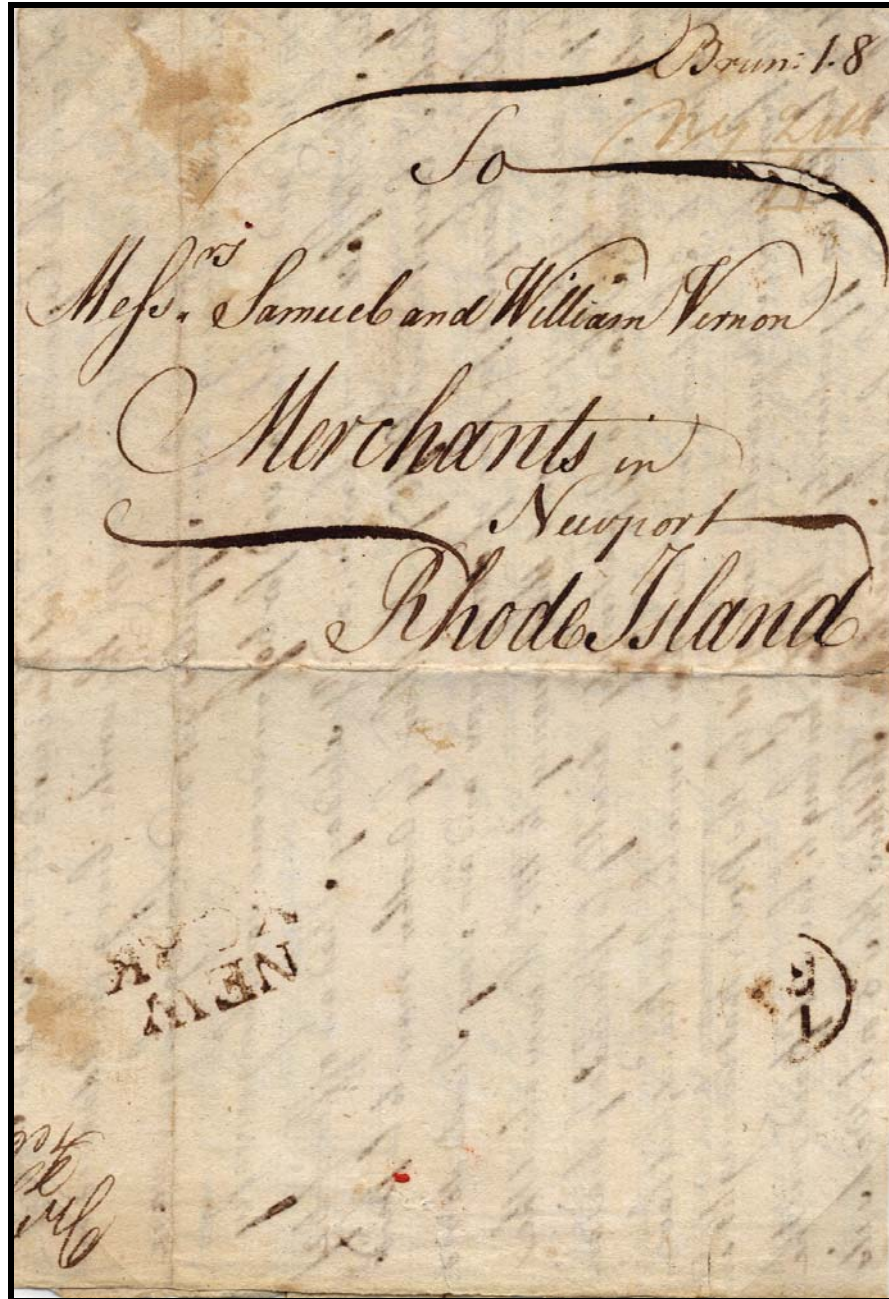 Brun: 1.8
To
Messrs. Samuel and William Vernon
Merchants in
Newport
Rhode Island
NEW
YORK